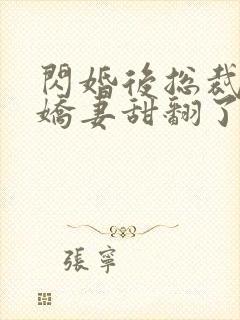 閃婚後總裁
嬌妻甜翻了
張寧